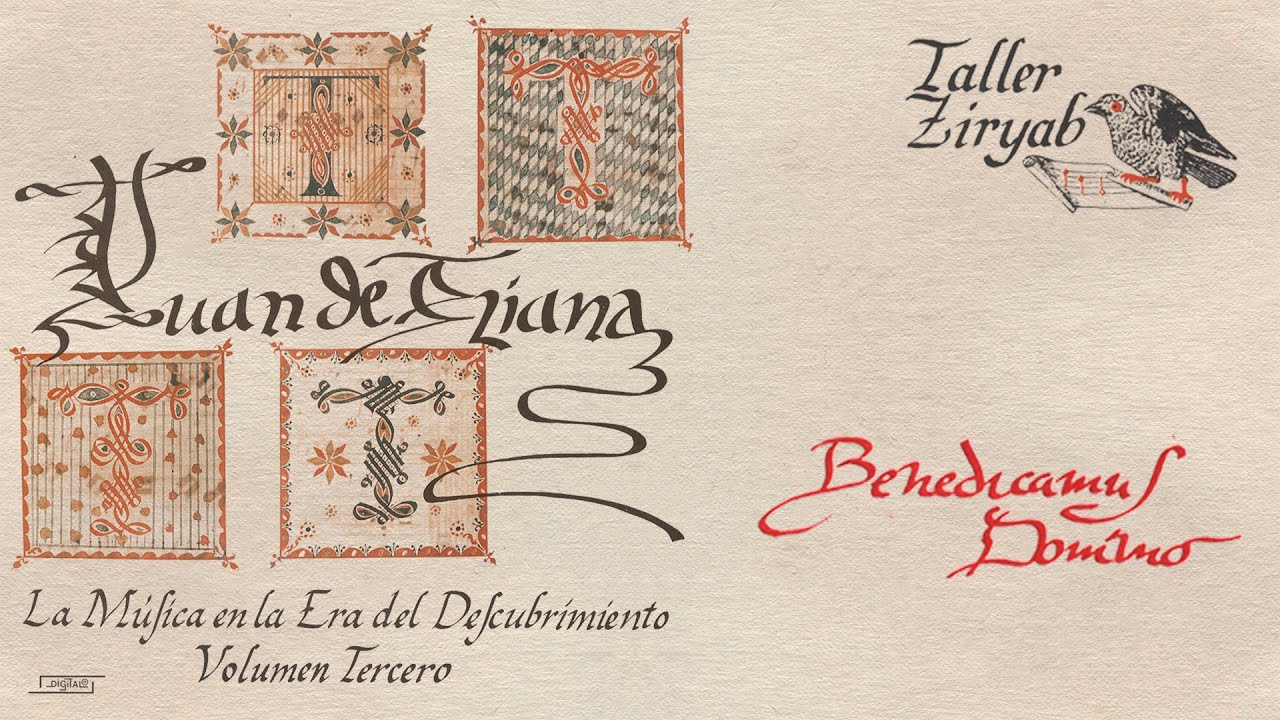 T T
Taller
Ziryab
Juan de Triana
T T
Benedicamus
Domino
La Múſica en la Era del Deſcubrimiento
Volumen Tercero